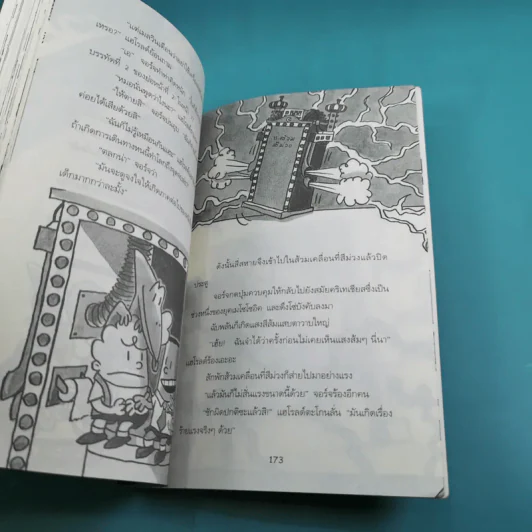 "แต่เมลวินเตือนเราแล้ว
เหรอ?" แฮโรลด์ย้อนถาม
"เอ" จอร์จทำท่าคิดหนัก
บรรทัดที่ 2 ของย่อหน้าที่ 2
"ให้ตายสิ" จอร์จ
ค่อยได้เสียด้วยสิ"
"ฉันก็ไม่รู้เหมือนกันเลย"
ถ้าเกิดการเดินทางหนนี้ทำโลก
"ตลกน่า" จอร์จว่า
"มันจะดูจงใจให้เกิด
เด็กมากกว่าละมั้ง"
ส้วม
สีม่วง
ดังนั้นสี่สหายจึงเข้าไปในส้วมเคลื่อนที่สีม่วงแล้วปิด
ประตู
จอร์จกดปุ่มควบคุมให้กลับไปยังสมัยคริเทเชียสซึ่งเป็น
ช่วงหนึ่งของยุคเมโซโซอิค และดึงโซ่บังคับลงมา
ฉับพลันก็เกิดแสงสีส้มแสบตาวาบใหญ่
"เฮ้ย! ฉันจำได้ว่าครั้งก่อนไม่เคยเห็นแสงส้มๆ นี่นา"
แฮโรลด์ร้องเอะอะ
สักพักส้วมเคลื่อนที่สีม่วงก็ส่ายไปมาอย่างแรง
"แล้วมันก็ไม่สั่นแรงขนาดนี้ด้วย" จอร์จร้องอีกคน
"ชักผิดปกติซะแล้วสิ!" แฮโรลด์ตะโกนลั่น "มันเกิดเรื่อง
ร้ายแรงจริงๆ ด้วย"
173